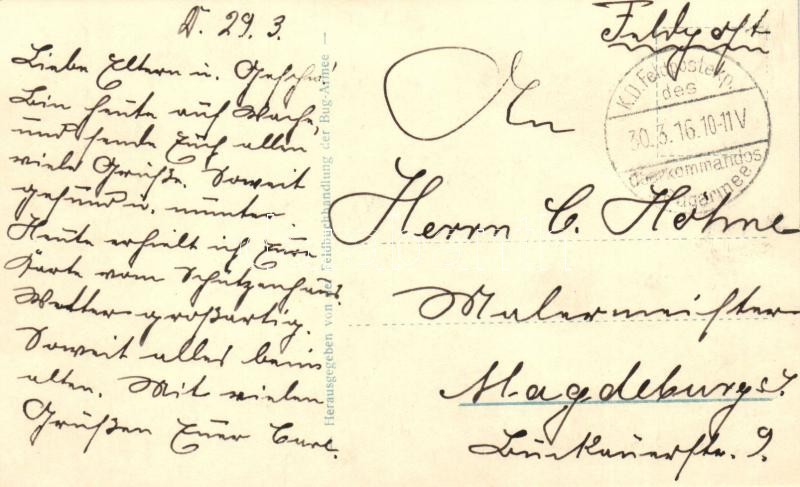 D. 29. 3.
Liebe Eltern u. Geschw.
Bin heute auf Wache,
und sende Euch allen
viele Grüße. Soweit
gesund u. munter.
Heute erhielt ich Eure
Karte vom Schützenhaus.
Wetter großartig.
Soweit alles beim
alten. Mit vielen
Grüßen Euer Carl.
Herausgegeben von der Feldbuchhandlung der Bug-Armee —
Feldpost
K.D. Feldpostexp.
des
30.3.16.10-11V
kommandos
Bugarmee
An
Herrn C. Hohne
Malermeister
Magdeburg
Buckauerstr. 9.